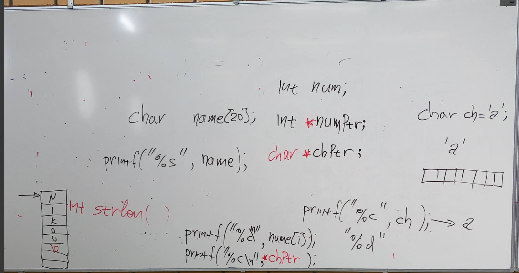 int num;
char name[20];
int *numPtr;
char ch='a';
'a'
printf("%s", name);
char *chPtr;
int strlen( )
printf("%c", ch); → a
"%d"
printf("%d", name[i]);
printf("%c\n", *chPtr );